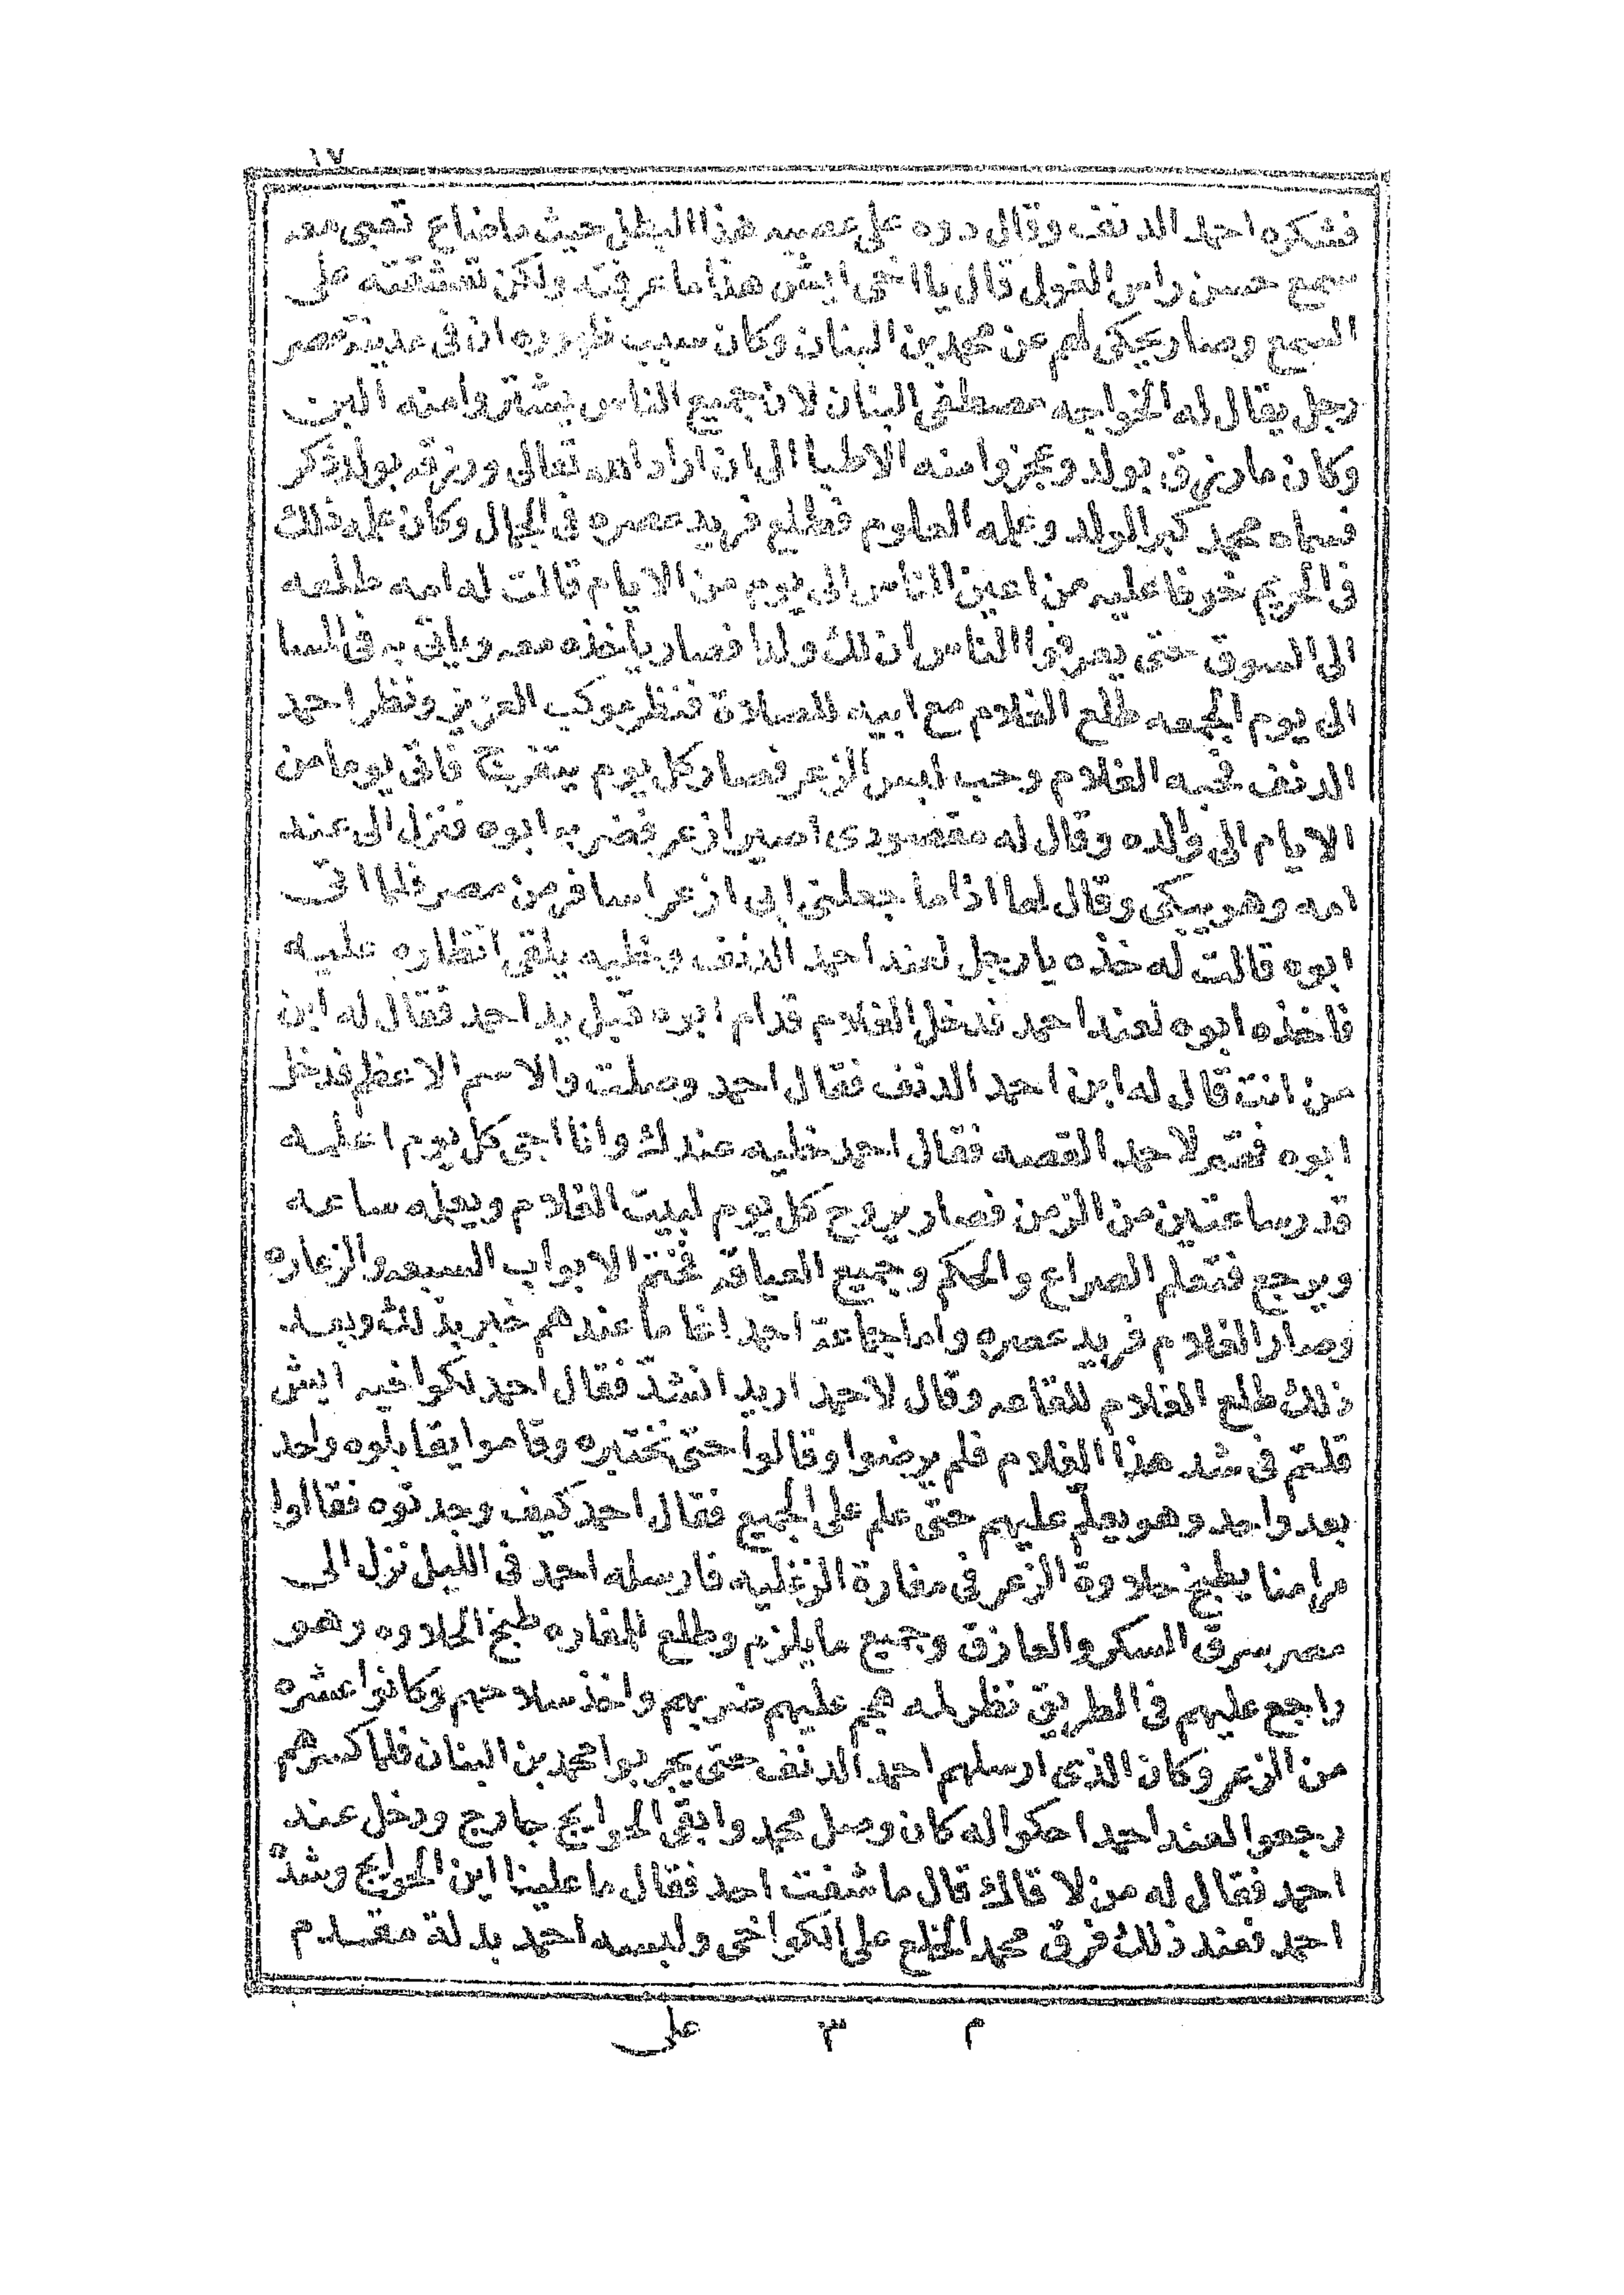 ١٧
فشكره احمد الدنف وقال دوه على عصبه هذا البطل حيث ماضاع تعبى معه
سمع حسن راس الغول قال يا اخى ايش هذا ما عرفته ولكن تشققته على
السمع وصار يحكى لهم عن محمد بن البنان وكان سبب ظهوره ان فى مدينة مصر
رجل يقال له الخواجه مصطفى البنان لان جميع الناس يشتروا منه البن
وكان ما رزق بولد وعجزوا منه الاطبا الى ان اراد الله تعالى ورزقه بولد ذكر
فسماه محمد كبر الولد وعلمه العلوم فطلع فريد عصره فى الجمال وكان عليه ذلك
فى الحريم خوفا عليه من اعين الناس الى يوم من الايام قالت له امه طلعه
الى السوق حتى يعرفوا الناس ان لك ولدا فصار يأخذه معه وياتى به فى المسا
الى يوم الجمعه طلع الغلام مع ابيه للصلاة فنظر موكب العزيز ونظر احمد
الدنف فحبه الغلام وحب لبس الزعر فصار كل يوم يتفرج فاتى يوما من
الايام الى والده وقال له مقصودى اصير ازعر فضربه ابوه فنزل الى عند
امه وهو يبكى وقال لها اذا ما جعلنى ابى ازعر اسافر من مصر فلما اتى
ابوه قالت له خذه يا رجل لعند احمد الدنف وخليه يلقى انظاره عليه
فاخذه ابوه لعند احمد فدخل الغلام قدام ابوه قبل يد احمد فقال له ابن
من انت قال له ابن احمد الدنف فقال احمد وصلت والاسم الاعظم فدخل
ابوه فقص لاحمد القصه فقال احمد خليه عندك وانا اجى كل يوم اعلمه
قدر ساعتين من الزمن فصار يروح كل يوم لبيت الغلام ويعلمه ساعه
ويرجع فتعلم الصراع والحكم وجميع العياقه فختم الابواب السبعه والزعاره
وصار الغلام فريد عصره واما جماعة احمد اغا ما عندهم خبر بذلك وبعد
ذلك طلع الغلام للقاعه وقال لاحمد اريد انشد فقال احمد لكواخيه ايش
قلتم فى شد هذا الغلام فلم يرضوا وقالوا حتى نختبره وقاموا يقابلوه واحد
بعد واحد وهو يعلم عليهم حتى علم على الجميع فقال احمد كيف وجدتوه فقالوا
مرامنا يطبخ حلاوة الزعر فى مغارة الزغليه فارسله احمد فى الليل نزل الى
مصر سرق السكر والعازق وجميع ما يلزم وطلع المغاره طبخ الحلاوه وهو
راجع عليهم فى الطريق نظر لمه هجم عليهم ضربهم واخذ سلاحهم وكانوا عشره
من الزعر وكان الذى ارسلهم احمد الدنف حتى يجربوا محمد بن البنان فلما كسرهم
رجعوا لعند احمد احكوا له كان وصل محمد وابقى الحوايج خارج ودخل عند
احمد فقال له من لاقاك قال ما شفت احد فقال ما علينا اين الحوايج وشدّه
احمد فعند ذلك فرق محمد الخلع على الكواخى ولبسه احمد بدلة مقدم
م ٣ على